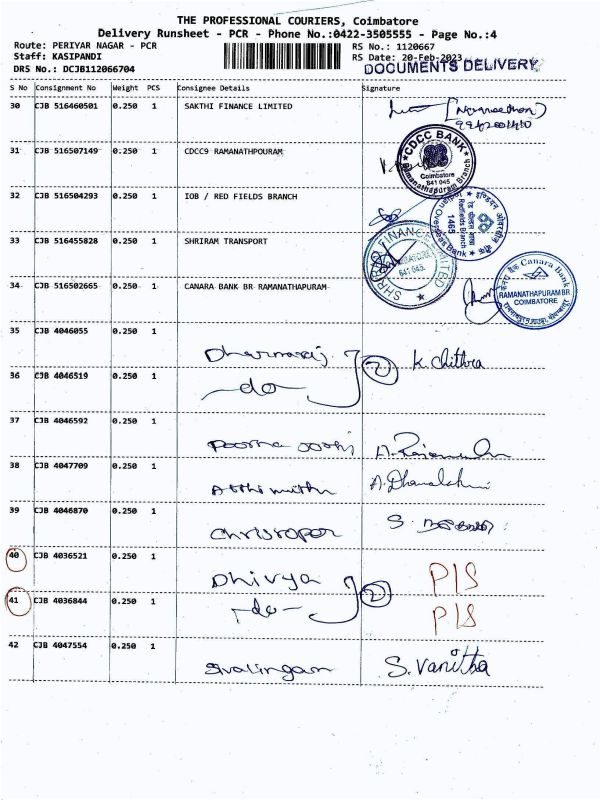 THE PROFESSIONAL COURIERS, Coimbatore
Delivery Runsheet - PCR - Phone No.:0422-3505555 - Page No.:4
Route: PERIYAR NAGAR - PCR RS No.: 1120667
Staff: KASIPANDI RS Date: 20-Feb-2023
DRS No.: DCJB112066704 DOCUMENTS DELIVERY
S No Consignment No Weight PCS Consignee Details Signature
30 CJB 516460501 0.250 1 SAKTHI FINANCE LIMITED
31 CJB 516507149 0.250 1 CDCC9 RAMANATHPOURAM
CDCC BANK
Coimbatore
641 045
Ramanathapuram Branch
32 CJB 516504293 0.250 1 IOB / RED FIELDS BRANCH
Indian Overseas Bank
Redfields Branch
1465
33 CJB 516455828 0.250 1 SHRIRAM TRANSPORT
641 045.
34 CJB 516502665 0.250 1 CANARA BANK BR RAMANATHAPURAM
Canara Bank
RAMANATHAPURAM BR
COIMBATORE
35 CJB 4046055 0.250 1 Dharmaraj K. Chithra
36 CJB 4046519 0.250 1 -do- 2
37 CJB 4046592 0.250 1
38 CJB 4047709 0.250 1 A. Dhanalakshmi
39 CJB 4046870 0.250 1 Christoper S.
40 CJB 4036521 0.250 1 Dhivya P/S
41 CJB 4036844 0.250 1 -do- 2 P/S
42 CJB 4047554 0.250 1 Sivalingam S. Vanitha